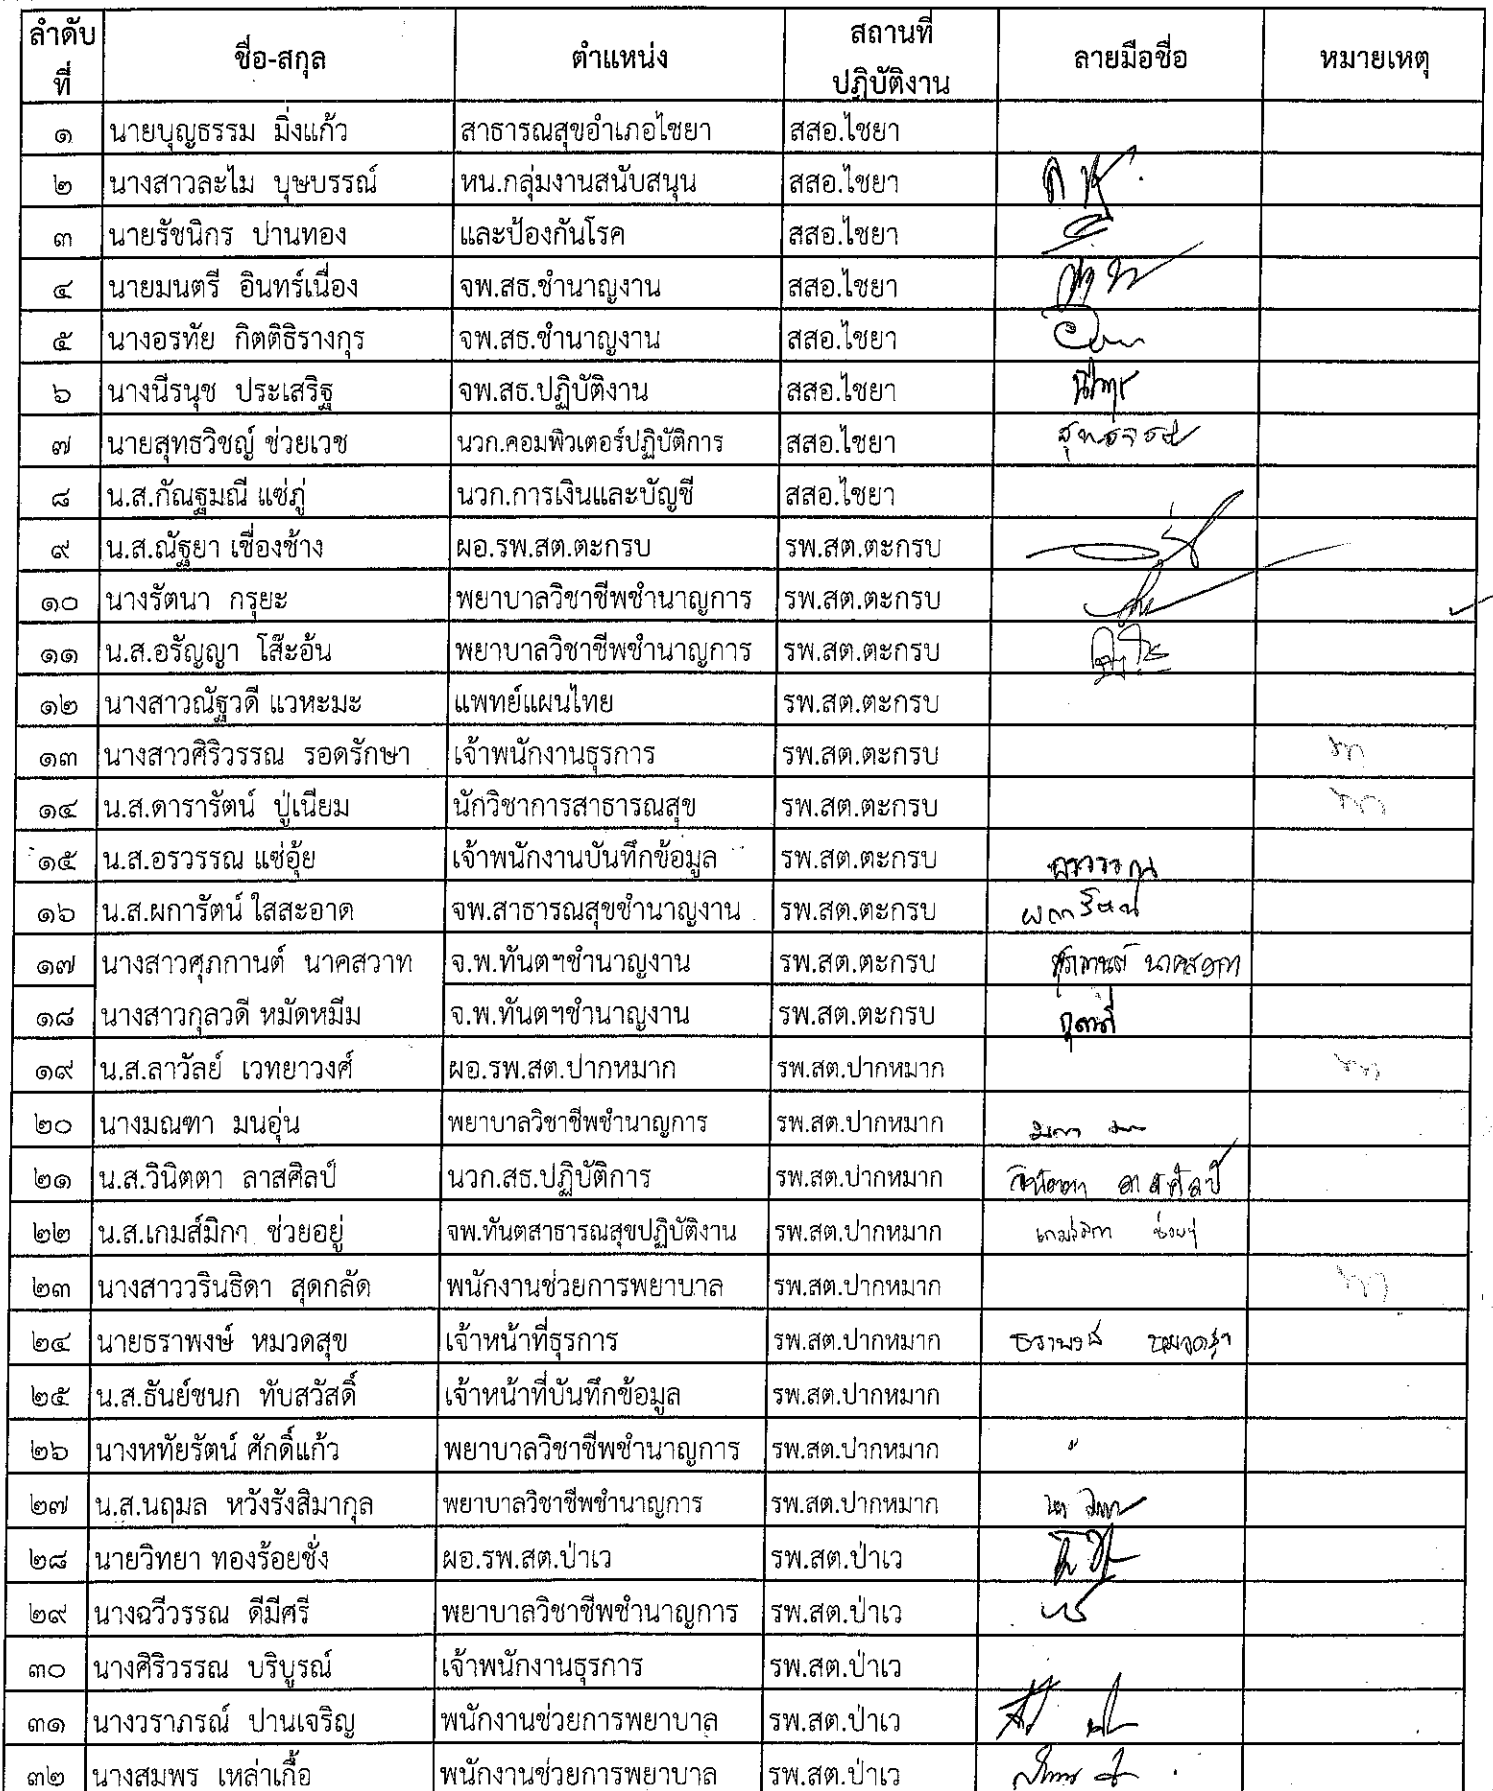 ลำดับที่ ชื่อ-สกุล ตำแหน่ง สถานที่ปฏิบัติงาน ลายมือชื่อ หมายเหตุ
๑ นายบุญธรรม มิ่งแก้ว สาธารณสุขอำเภอไชยา สสอ.ไชยา
๒ นางสาวละไม บุษบรรณ์ หน.กลุ่มงานสนับสนุน สสอ.ไชยา
๓ นายรัชนิกร ปานทอง และป้องกันโรค สสอ.ไชยา
๔ นายมนตรี อินทร์เนื่อง จพ.สธ.ชำนาญงาน สสอ.ไชยา
๕ นางอรทัย กิตติธิรางกุร จพ.สธ.ชำนาญงาน สสอ.ไชยา
๖ นางนีรนุช ประเสริฐ จพ.สธ.ปฏิบัติงาน สสอ.ไชยา
๗ นายสุทธวิชญ์ ช่วยเวช นวก.คอมพิวเตอร์ปฏิบัติการ สสอ.ไชยา
๘ น.ส.กัณฐมณี แซ่ภู่ นวก.การเงินและบัญชี สสอ.ไชยา
๙ น.ส.ณัฐยา เชื่องช้าง ผอ.รพ.สต.ตะกรบ รพ.สต.ตะกรบ
๑๐ นางรัตนา กรุยะ พยาบาลวิชาชีพชำนาญการ รพ.สต.ตะกรบ
๑๑ น.ส.อรัญญา โส๊ะอ้น พยาบาลวิชาชีพชำนาญการ รพ.สต.ตะกรบ
๑๒ นางสาวณัฐวดี แวหะมะ แพทย์แผนไทย รพ.สต.ตะกรบ
๑๓ นางสาวศิริวรรณ รอดรักษา เจ้าพนักงานธุรการ รพ.สต.ตะกรบ
๑๔ น.ส.ดารารัตน์ ปู่เนียม นักวิชาการสาธารณสุข รพ.สต.ตะกรบ
๑๕ น.ส.อรวรรณ แซ่อุ้ย เจ้าพนักงานบันทึกข้อมูล รพ.สต.ตะกรบ อรวรรณ
๑๖ น.ส.ผการัตน์ ใสสะอาด จพ.สาธารณสุขชำนาญงาน รพ.สต.ตะกรบ ผการัตน์
๑๗ นางสาวศุภกานต์ นาคสวาท จ.พ.ทันตฯชำนาญงาน รพ.สต.ตะกรบ ศุภกานต์ นาคสวาท
๑๘ นางสาวกุลวดี หมัดหมีม จ.พ.ทันตฯชำนาญงาน รพ.สต.ตะกรบ กุลวดี
๑๙ น.ส.ลาวัลย์ เวทยาวงศ์ ผอ.รพ.สต.ปากหมาก รพ.สต.ปากหมาก
๒๐ นางมณฑา มนอุ่น พยาบาลวิชาชีพชำนาญการ รพ.สต.ปากหมาก
๒๑ น.ส.วินิตตา ลาสศิลป์ นวก.สธ.ปฏิบัติการ รพ.สต.ปากหมาก วินิตตา ลาสศิลป์
๒๒ น.ส.เกมส์มิกา ช่วยอยู่ จพ.ทันตสาธารณสุขปฏิบัติงาน รพ.สต.ปากหมาก เกมส์มิกา
๒๓ นางสาววรินธิดา สุดกลัด พนักงานช่วยการพยาบาล รพ.สต.ปากหมาก
๒๔ นายธราพงษ์ หมวดสุข เจ้าหน้าที่ธุรการ รพ.สต.ปากหมาก ธราพงษ์ หมวดสุข
๒๕ น.ส.ธันย์ชนก ทับสวัสดิ์ เจ้าหน้าที่บันทึกข้อมูล รพ.สต.ปากหมาก
๒๖ นางหทัยรัตน์ ศักดิ์แก้ว พยาบาลวิชาชีพชำนาญการ รพ.สต.ปากหมาก
๒๗ น.ส.นฤมล หวังรังสิมากุล พยาบาลวิชาชีพชำนาญการ รพ.สต.ปากหมาก
๒๘ นายวิทยา ทองร้อยชั่ง ผอ.รพ.สต.ป่าเว รพ.สต.ป่าเว
๒๙ นางฉวีวรรณ ดีมีศรี พยาบาลวิชาชีพชำนาญการ รพ.สต.ป่าเว
๓๐ นางศิริวรรณ บริบูรณ์ เจ้าพนักงานธุรการ รพ.สต.ป่าเว
๓๑ นางวราภรณ์ ปานเจริญ พนักงานช่วยการพยาบาล รพ.สต.ป่าเว
๓๒ นางสมพร เหล่าเกื้อ พนักงานช่วยการพยาบาล รพ.สต.ป่าเว